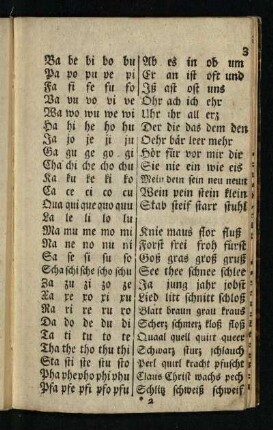 3
Ba be bi bo bu Ab es in ob um
Pa po pu pe pi Er an ist oft und
Fa fi fe fu fo Iß ast ost uns
Va vu vo vi ve Ohr ach ich ehr
Wa wo wu we wi Uhr ihr all erz
Ha hi he ho hu Der die das dem den
Ja jo je ji ju Oehr bär leer mehr
Ga gu ge go gi Hör für vor mir dir
Cha chi che cho chu Sie nie ein wie eis
Ka ku ke ki ko Mein dein sein neu neun
Ca ce ci co cu Wein pein stein klein
Qua qui que quo quu Stab steif starr stuhl
La le li lo lu
Ma mu me mo mi Knie maus flor fluß
Na ne no nu ni Forst frei froh fürst
Sa se si su so Goß gras groß gruß
Scha schi sche scho schu See thee schnee schlee
Za zu zi zo ze Ja jung jahr jobst
Xa xe xo xi xu Lied litt schnitt schloß
Ra ri re ru ro Blatt braun grau kraus
Da do de du di Scherz schmerz kloß stoß
Ta ti tu to te Quaal quell quitt queer
Tha the tho thu thi Schwarz sturz schlauch
Sta sti ste stu sto Perl quirl kracht pfuscht
Pha phe pho phi phu Claus Christ wachs pech
Pfa pfe pfi pfo pfu Schlitz schweiß schweif
* 2